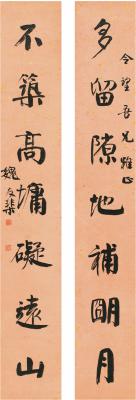 今望吾兄雅正
多留隙地補明月
不築高墉礙遠山
魏友棐